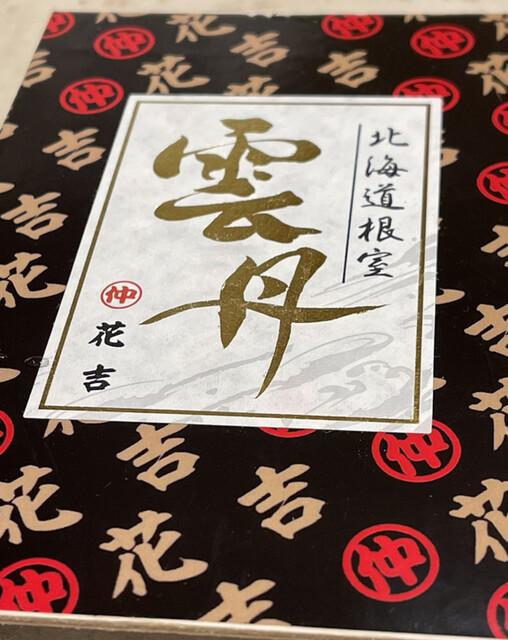 北海道根室
雲丹
仲
花吉